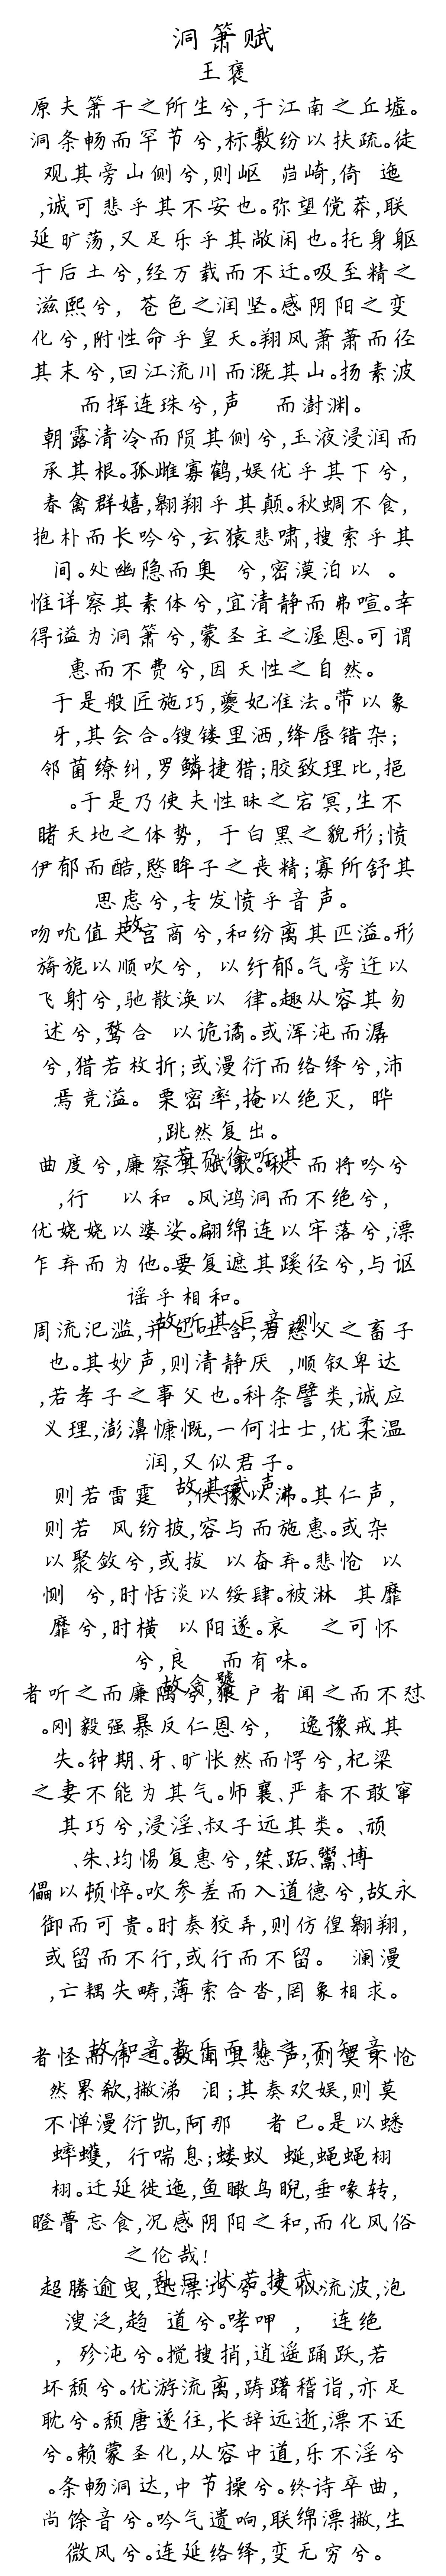 洞箫赋
王褒
原夫箫干之所生兮,于江南之丘墟。
洞条畅而罕节兮,标敷纷以扶疏。徒
观其旁山侧兮,则岖 岿崎,倚 迤
,诚可悲乎其不安也。弥望傥莽,联
延旷荡,又足乐乎其敞闲也。托身躯
于后土兮,经万载而不迁。吸至精之
滋熙兮, 苍色之润坚。感阴阳之变
化兮,附性命乎皇天。翔风萧萧而径
其末兮,回江流川而溉其山。扬素波
而挥连珠兮,声 而澍渊。
朝露清冷而陨其侧兮,玉液浸润而
承其根。孤雌寡鹤,娱优乎其下兮,
春禽群嬉,翱翔乎其颠。秋蜩不食,
抱朴而长吟兮,玄猿悲啸,搜索乎其
间。处幽隐而奥 兮,密漠泊以 。
惟详察其素体兮,宜清静而弗喧。幸
得谥为洞箫兮,蒙圣主之渥恩。可谓
惠而不费兮,因天性之自然。
于是般匠施巧,夔妃准法。带以象
牙,其会合。锼镂里洒,绛唇错杂;
邻菌缭纠,罗鳞捷猎;胶致理比,挹
。于是乃使夫性昧之宕冥,生不
睹天地之体势, 于白黑之貌形;愤
伊郁而酷,愍眸子之丧精;寡所舒其
思虑兮,专发愤乎音声。
故
吻吮值夫宫商兮,和纷离其匹溢。形
旖旎以顺吹兮, 以纡郁。气旁迕以
飞射兮,驰散涣以 律。趣从容其勿
述兮,骛合 以诡谲。或浑沌而潺
兮,猎若枚折;或漫衍而络绎兮,沛
焉竞溢。栗密率,掩以绝灭, 晔
,跳然复出。
若乃徐听其
曲度兮,廉察其赋歌。啾 而将吟兮
,行 以和 。风鸿洞而不绝兮,
优娆娆以婆娑。翩绵连以牢落兮,漂
乍弃而为他。要复遮其蹊径兮,与讴
谣乎相和。
故听其巨音,则
周流汜滥,并包吐含,若慈父之畜子
也。其妙声,则清静厌 ,顺叙卑达
,若孝子之事父也。科条譬类,诚应
义理,澎濞慷慨,一何壮士,优柔温
润,又似君子。
故其武声,
则若雷霆 ,佚豫以沸。其仁声,
则若 风纷披,容与而施惠。或杂
以聚敛兮,或拔 以奋弃。悲怆 以
恻 兮,时恬淡以绥肆。被淋 其靡
靡兮,时横 以阳遂。哀 之可怀
兮,良 而有味。
故贪饕
者听之而廉隅兮,狼户者闻之而不怼
。刚毅强暴反仁恩兮, 逸豫戒其
失。钟期、牙、旷怅然而愕兮,杞梁
之妻不能为其气。师襄、严春不敢窜
其巧兮,浸淫、叔子远其类。、顽
、朱、均惕复惠兮,桀、跖、鬻、博
儡以顿悴。吹参差而入道德兮,故永
御而可贵。时奏狡弄,则仿徨翱翔,
或留而不行,或行而不留。 澜漫
,亡耦失畴,薄索合沓,罔象相求。
故知音者乐而悲之,不知音
者怪而伟之。故闻其悲声,则莫不怆
然累欷,撇涕 泪;其奏欢娱,则莫
不惮漫衍凯,阿那 者已。是以蟋
蟀蠖, 行喘息;蝼蚁 蜒,蝇蝇栩
栩。迁延徙迤,鱼瞰鸟睨,垂喙转,
瞪瞢忘食,况感阴阳之和,而化风俗
之伦哉!
乱曰:状若捷武,
超腾逾曳,迅漂巧兮。又似流波,泡
溲泛,趋 道兮。哮呷 , 连绝
, 殄沌兮。搅搜捎,逍遥踊跃,若
坏颓兮。优游流离,踌躇稽诣,亦足
耽兮。颓唐遂往,长辞远逝,漂不还
兮。赖蒙圣化,从容中道,乐不淫兮
。条畅洞达,中节操兮。终诗卒曲,
尚馀音兮。吟气遗响,联绵漂撇,生
微风兮。连延络绎,变无穷兮。